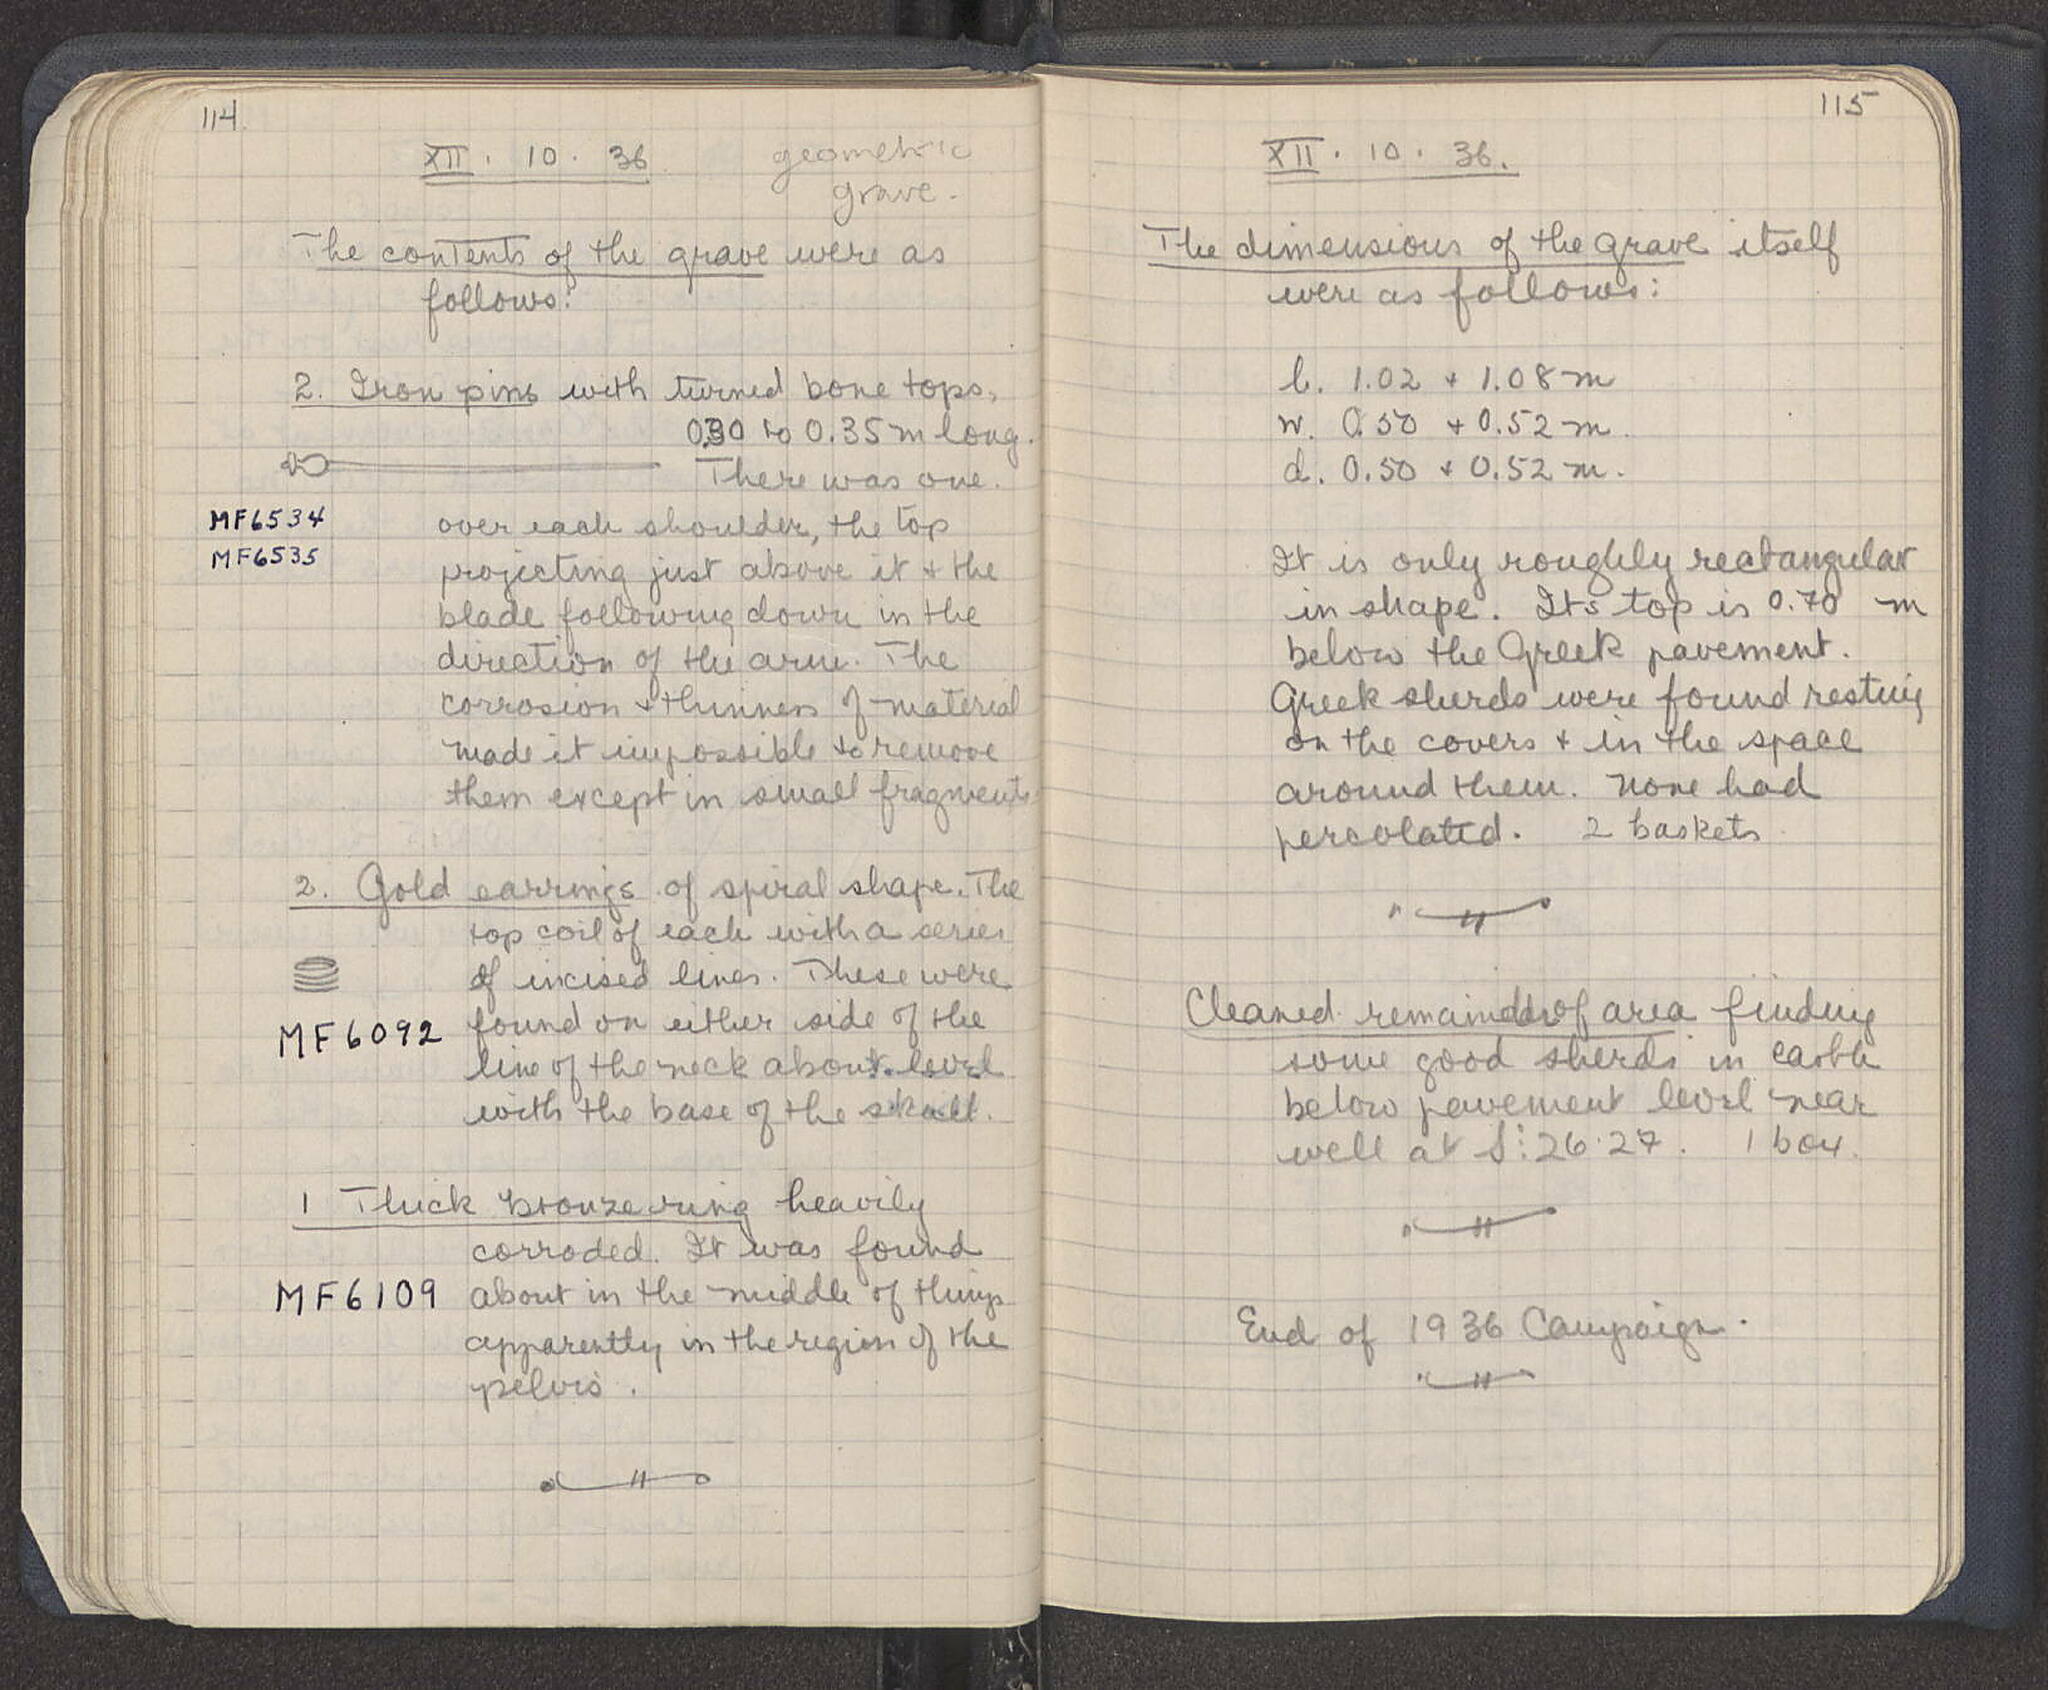 114
XII. 10. 36
geometric
grave.
The contents of the grave were as
follows:
2. Iron pins with turned bone tops,
0.30 to 0.35 m long.
There was one.
MF6534
MF6535
over each shoulder, the top
projecting just above it + the
blade following down in the
direction of the arm. The
corrosion + thinness of material
made it impossible to remove
them except in small fragments
2. Gold earrings of spiral shape. The
top coil of each with a series
of incised lines. These were
MF6092
found on either side of the
line of the neck about level
with the base of the skull.
1 Thick bronze ring heavily
corroded. It was found
MF6109
about in the middle of things
apparently in the region of the
pelvis.
115
XII. 10. 36.
The dimensions of the grave itself
were as follows:
l. 1.02 + 1.08 m
w. 0.50 + 0.52 m.
d. 0.50 + 0.52 m.
It is only roughly rectangular
in shape. Its top is 0.70 m
below the Greek pavement.
Greek sherds were found resting
on the covers + in the space
around them. None had
percolated. 2 baskets
Cleaned remainder of area finding
some good sherds in earth
below pavement level near
well at S:26·27. 1 box.
End of 1936 Campaign.